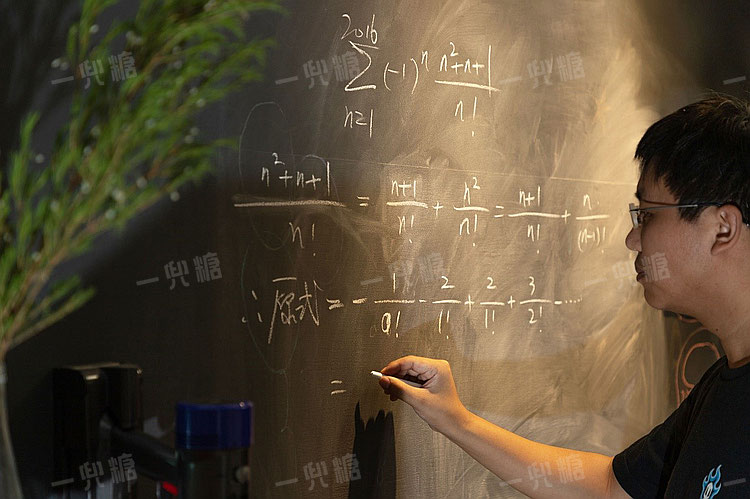 2016
Σ (-1)^n (n²+n+1)/n!
n=1
(n²+n+1)/n! = (n+1)/n! + n²/n! = (n+1)/n! + n/(n-1)!
∴原式 = -1/0! - 2/1! + 2/1! + 3/2! - ……
=
一兜糖
一兜糖
一兜糖
一兜糖
一兜糖
一兜糖
一兜糖
一兜糖
一兜糖